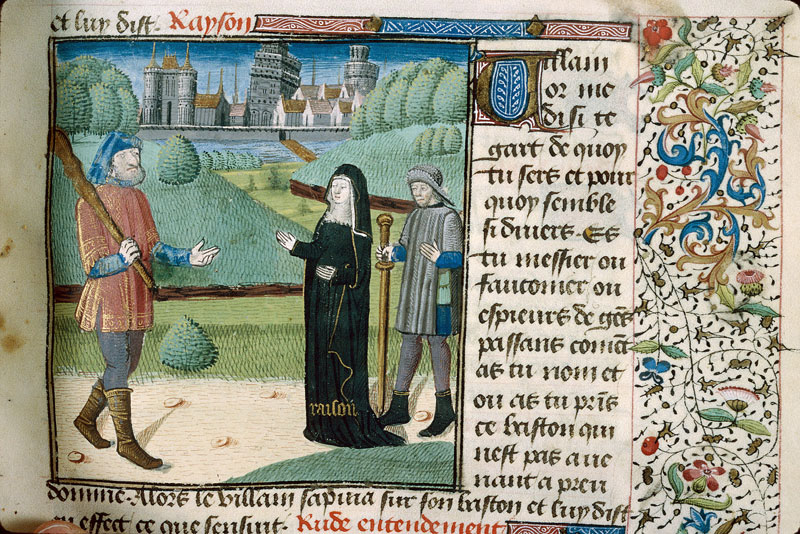 et luy dist. Rayson
Villain
or me
di si te
gart de quoy
tu sers et pour
quoy semble
si divers. Es
tu messier ou
fauconier ou
espieurs de gens
passans comēt
as tu nom et
ou as tu pris
ce baston qui
nest pas aue
nant a preu
raison
domme. Alors le villain sapuia sur son baston et luy dist
en effect ce que sensuit. Rude entendement